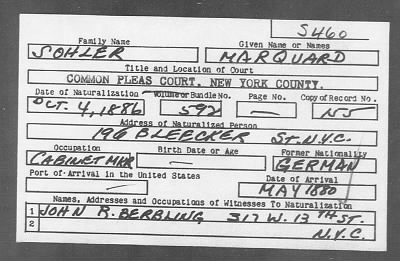 S460
Family Name Given Name or Names
SOHLER MARQUARD
Title and Location of Court
COMMON PLEAS COURT, NEW YORK COUNTY.
Date of Naturalization Volume or Bundle No. Page No. Copy of Record No.
OCT. 4, 1886 592 — NS
Address of Naturalized Person
196 BLEECKER ST. N.Y.C.
Occupation Birth Date or Age Former Nationality
CABINET MKR — GERMAN
Port of Arrival in the United States Date of Arrival
— MAY 1880
Names, Addresses and Occupations of Witnesses To Naturalization
1 JOHN R. BERBLING 317 W. 13TH ST.
2 N.Y.C.